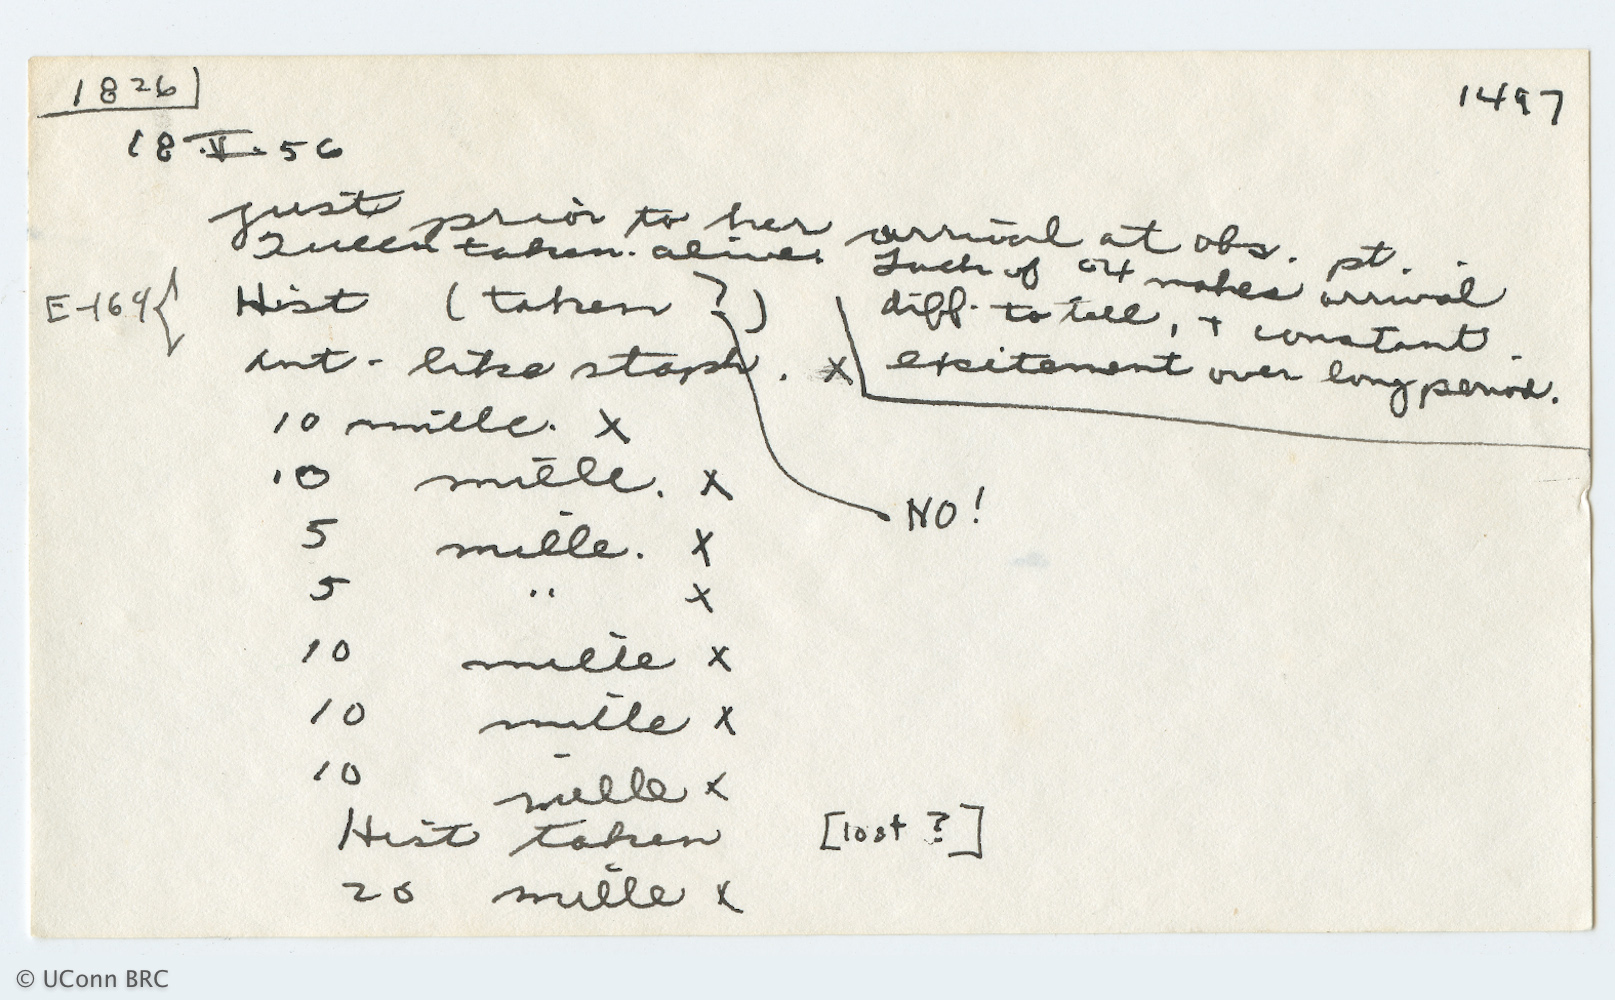 1826
1497
18.V.56
just prior to her arrival at obs. pt.
Queen taken alive. Lack of makes arrival
E-169{ Hist (taken ?) diff. to tell, + constant
ant-like staph. X excitement over long period.
10 mille. X
10 mille. X
NO!
5 mille. X
5 " X
10 mille X
10 mille X
10 mille X
Hist taken [lost ?]
20 mille X
© UConn BRC